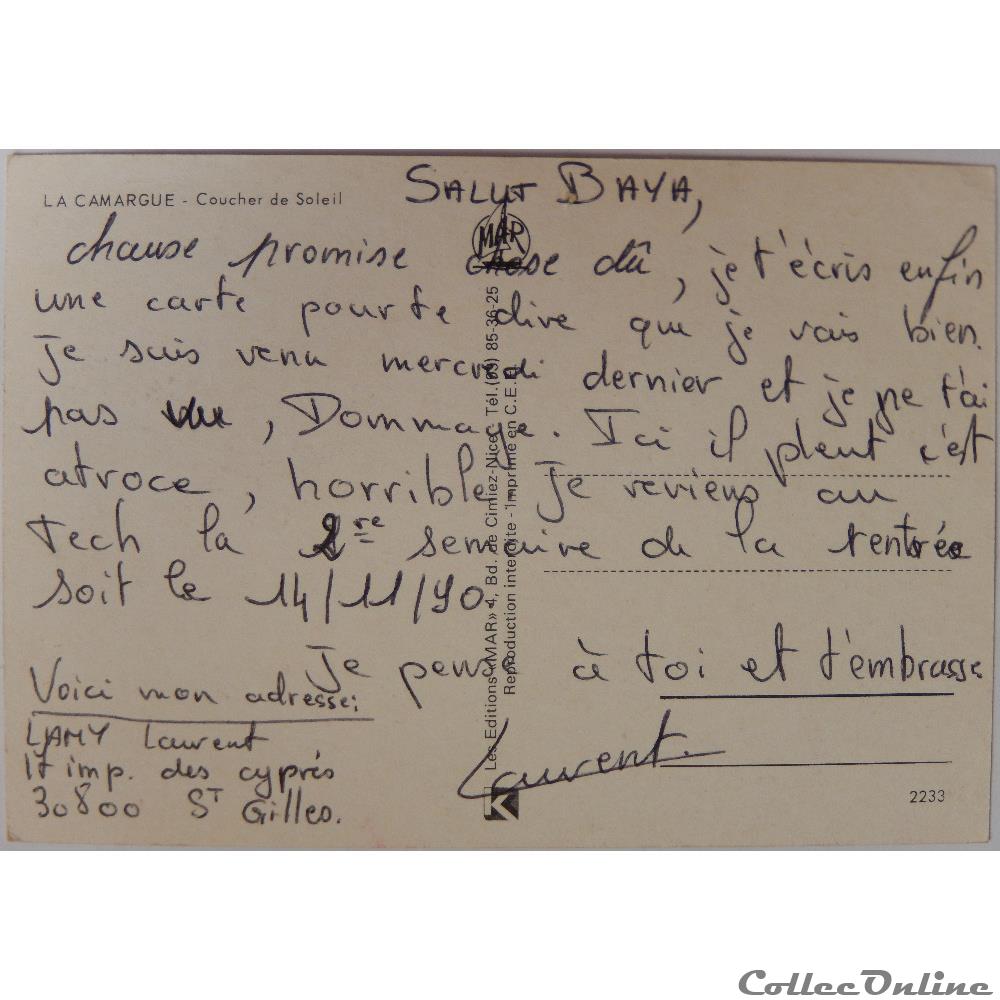 LA CAMARGUE - Coucher de Soleil
SALUT BAYA,
MAR
chause promise chose dû, je t'écris enfin
une carte pour te dire que je vais bien.
Je suis venu mercredi dernier et je ne t'ai
pas vu, Dommage. Ici il pleut c'est
atroce, horrible. Je reviens au
Tech la 2re semaine de la rentrée
soit le 14/11/90.
Je pense à toi et t'embrasse
Laurent.
Voici mon adresse:
LAMY Laurent
17 imp. des cyprés
30800 ST Gilles.
Les Editions «MAR» 4, Bd. de Cimiez-Nice Tél.(93) 85-36-25
Reproduction interdite - Imprimé en C.E.E.
K
2233
CollecOnline